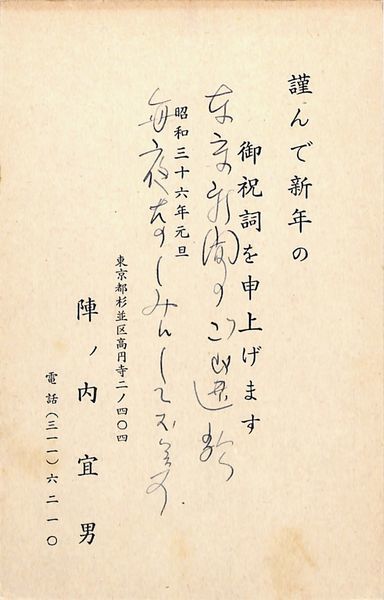 謹んで新年の
御祝詞を申上げます
東京新聞の
昭和三十六年元旦
毎夜たのしみんして
東京都杉並区高円寺二ノ四〇四
陣ノ内宜男
電話(三一一)六二一〇